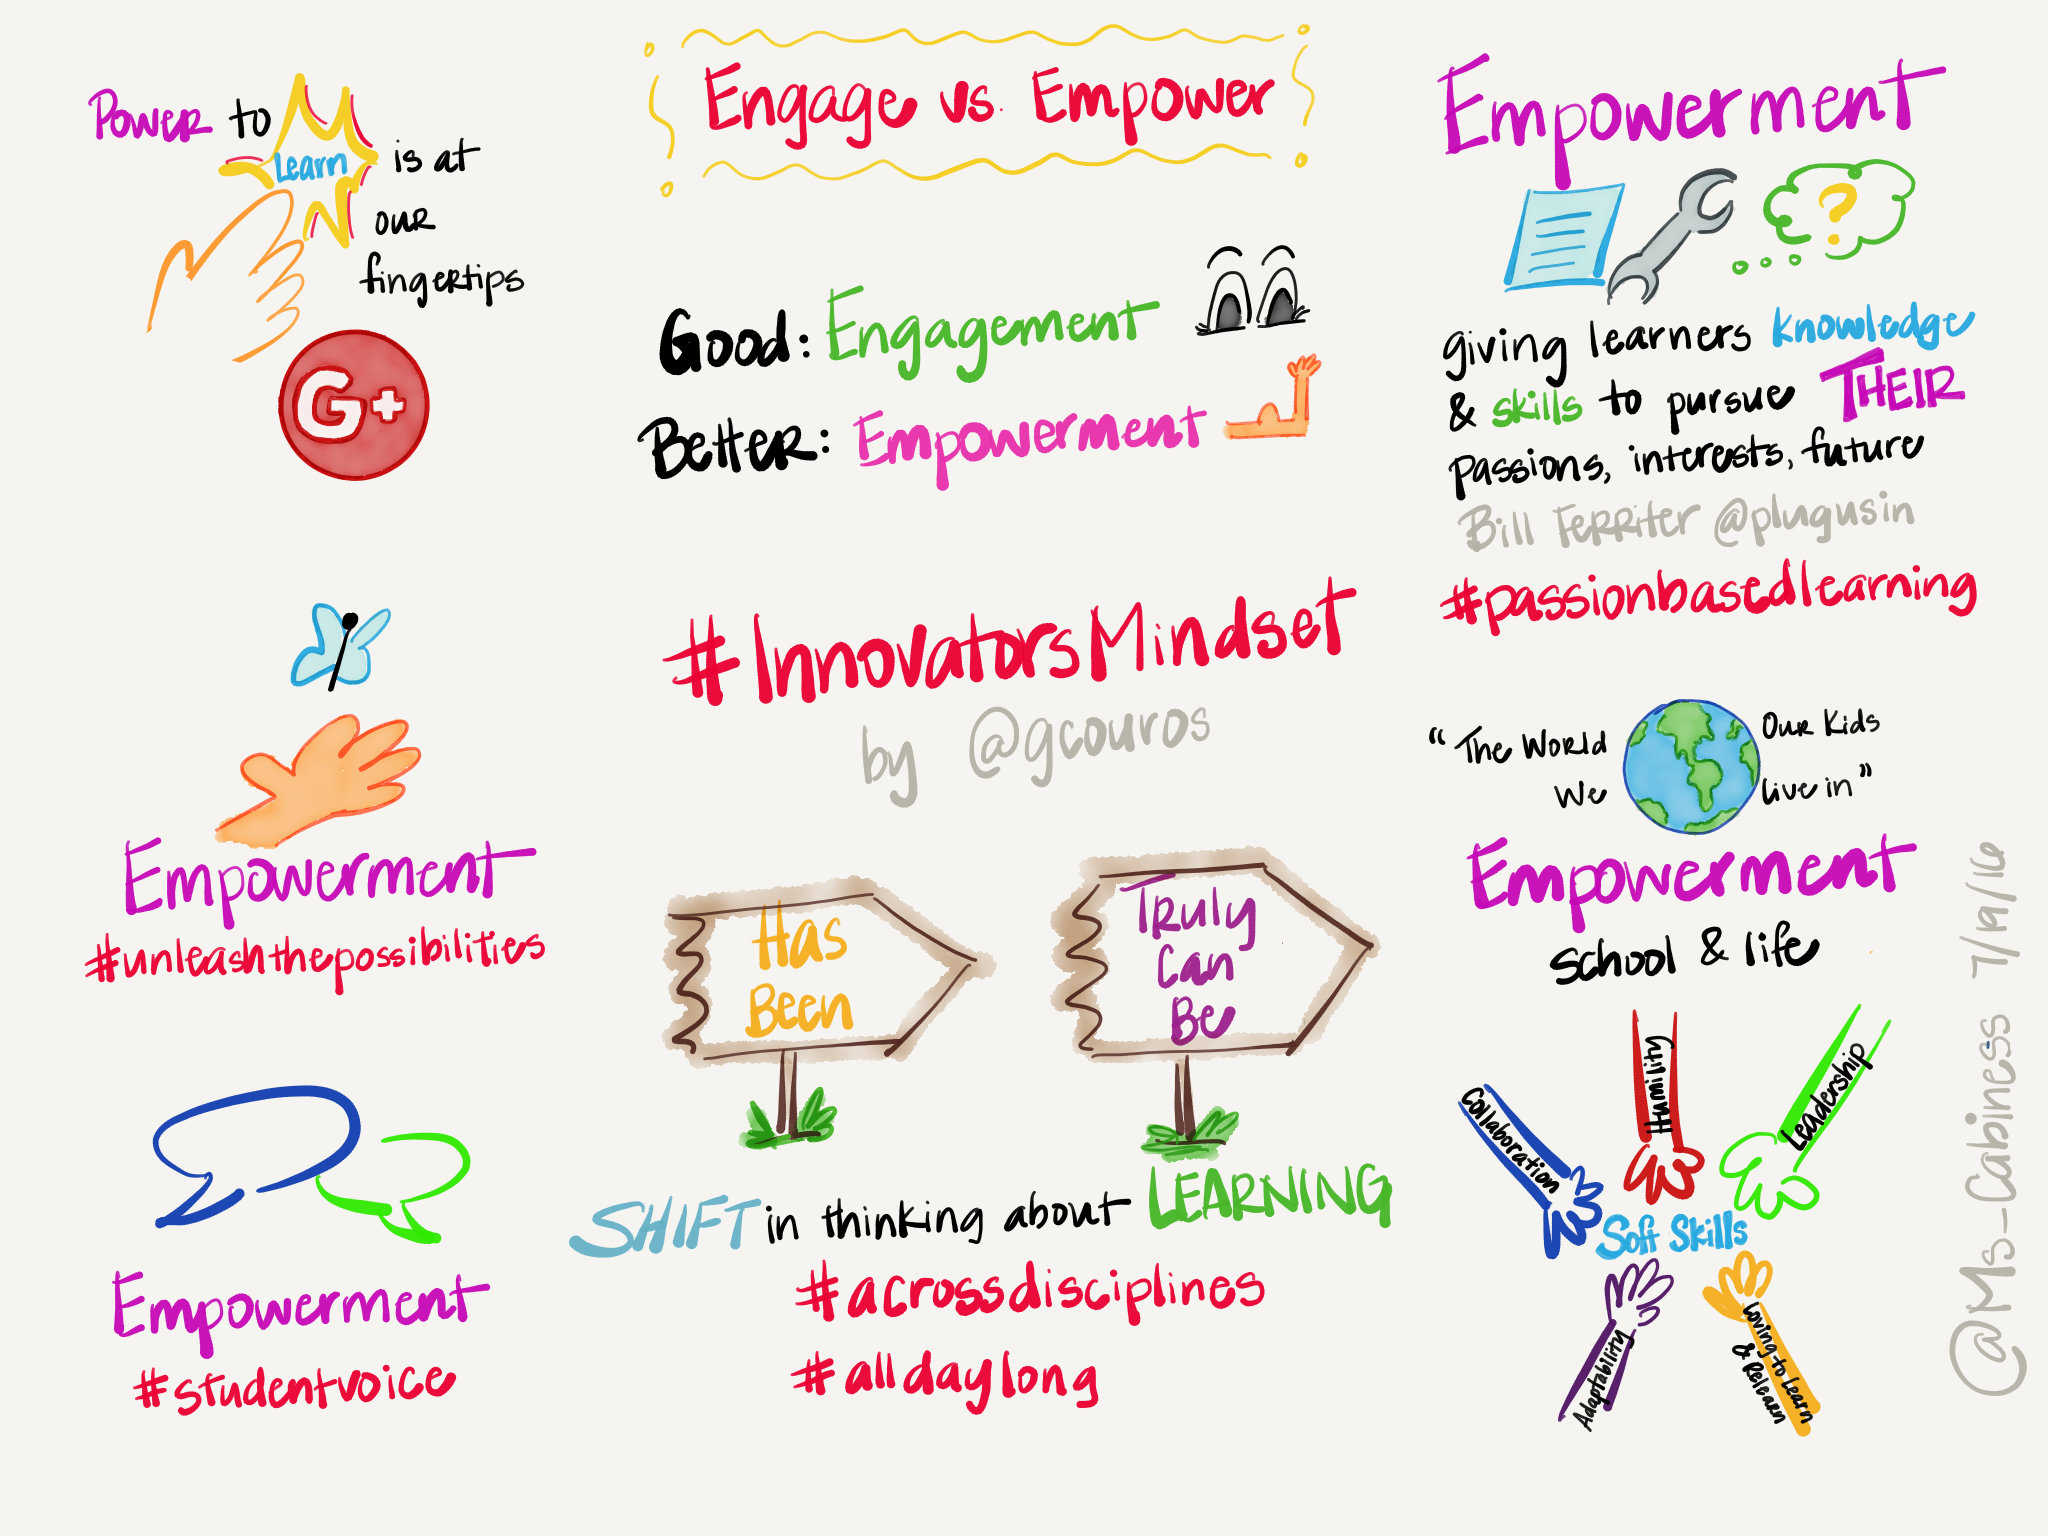 Engage vs. Empower
Power to Learn is at
our
fingertips
G+
Good: Engagement
Better: Empowerment
Empowerment
?
giving learners knowledge
& skills to pursue THEIR
passions, interests, future
Bill Ferriter @plugusin
#passionbasedlearning
#InnovatorsMindset
by @gcouros
Empowerment
#unleashthepossibilities
"The World Our Kids
We live in"
Empowerment
school & life
Has
Been
Truly
Can
Be
SHIFT in thinking about LEARNING
#acrossdisciplines
#alldaylong
Empowerment
#studentvoice
Collaboration
Humility
Leadership
Soft Skills
Adaptability
Loving to Learn
& Relearn
@Ms_Cabiness 7/19/16